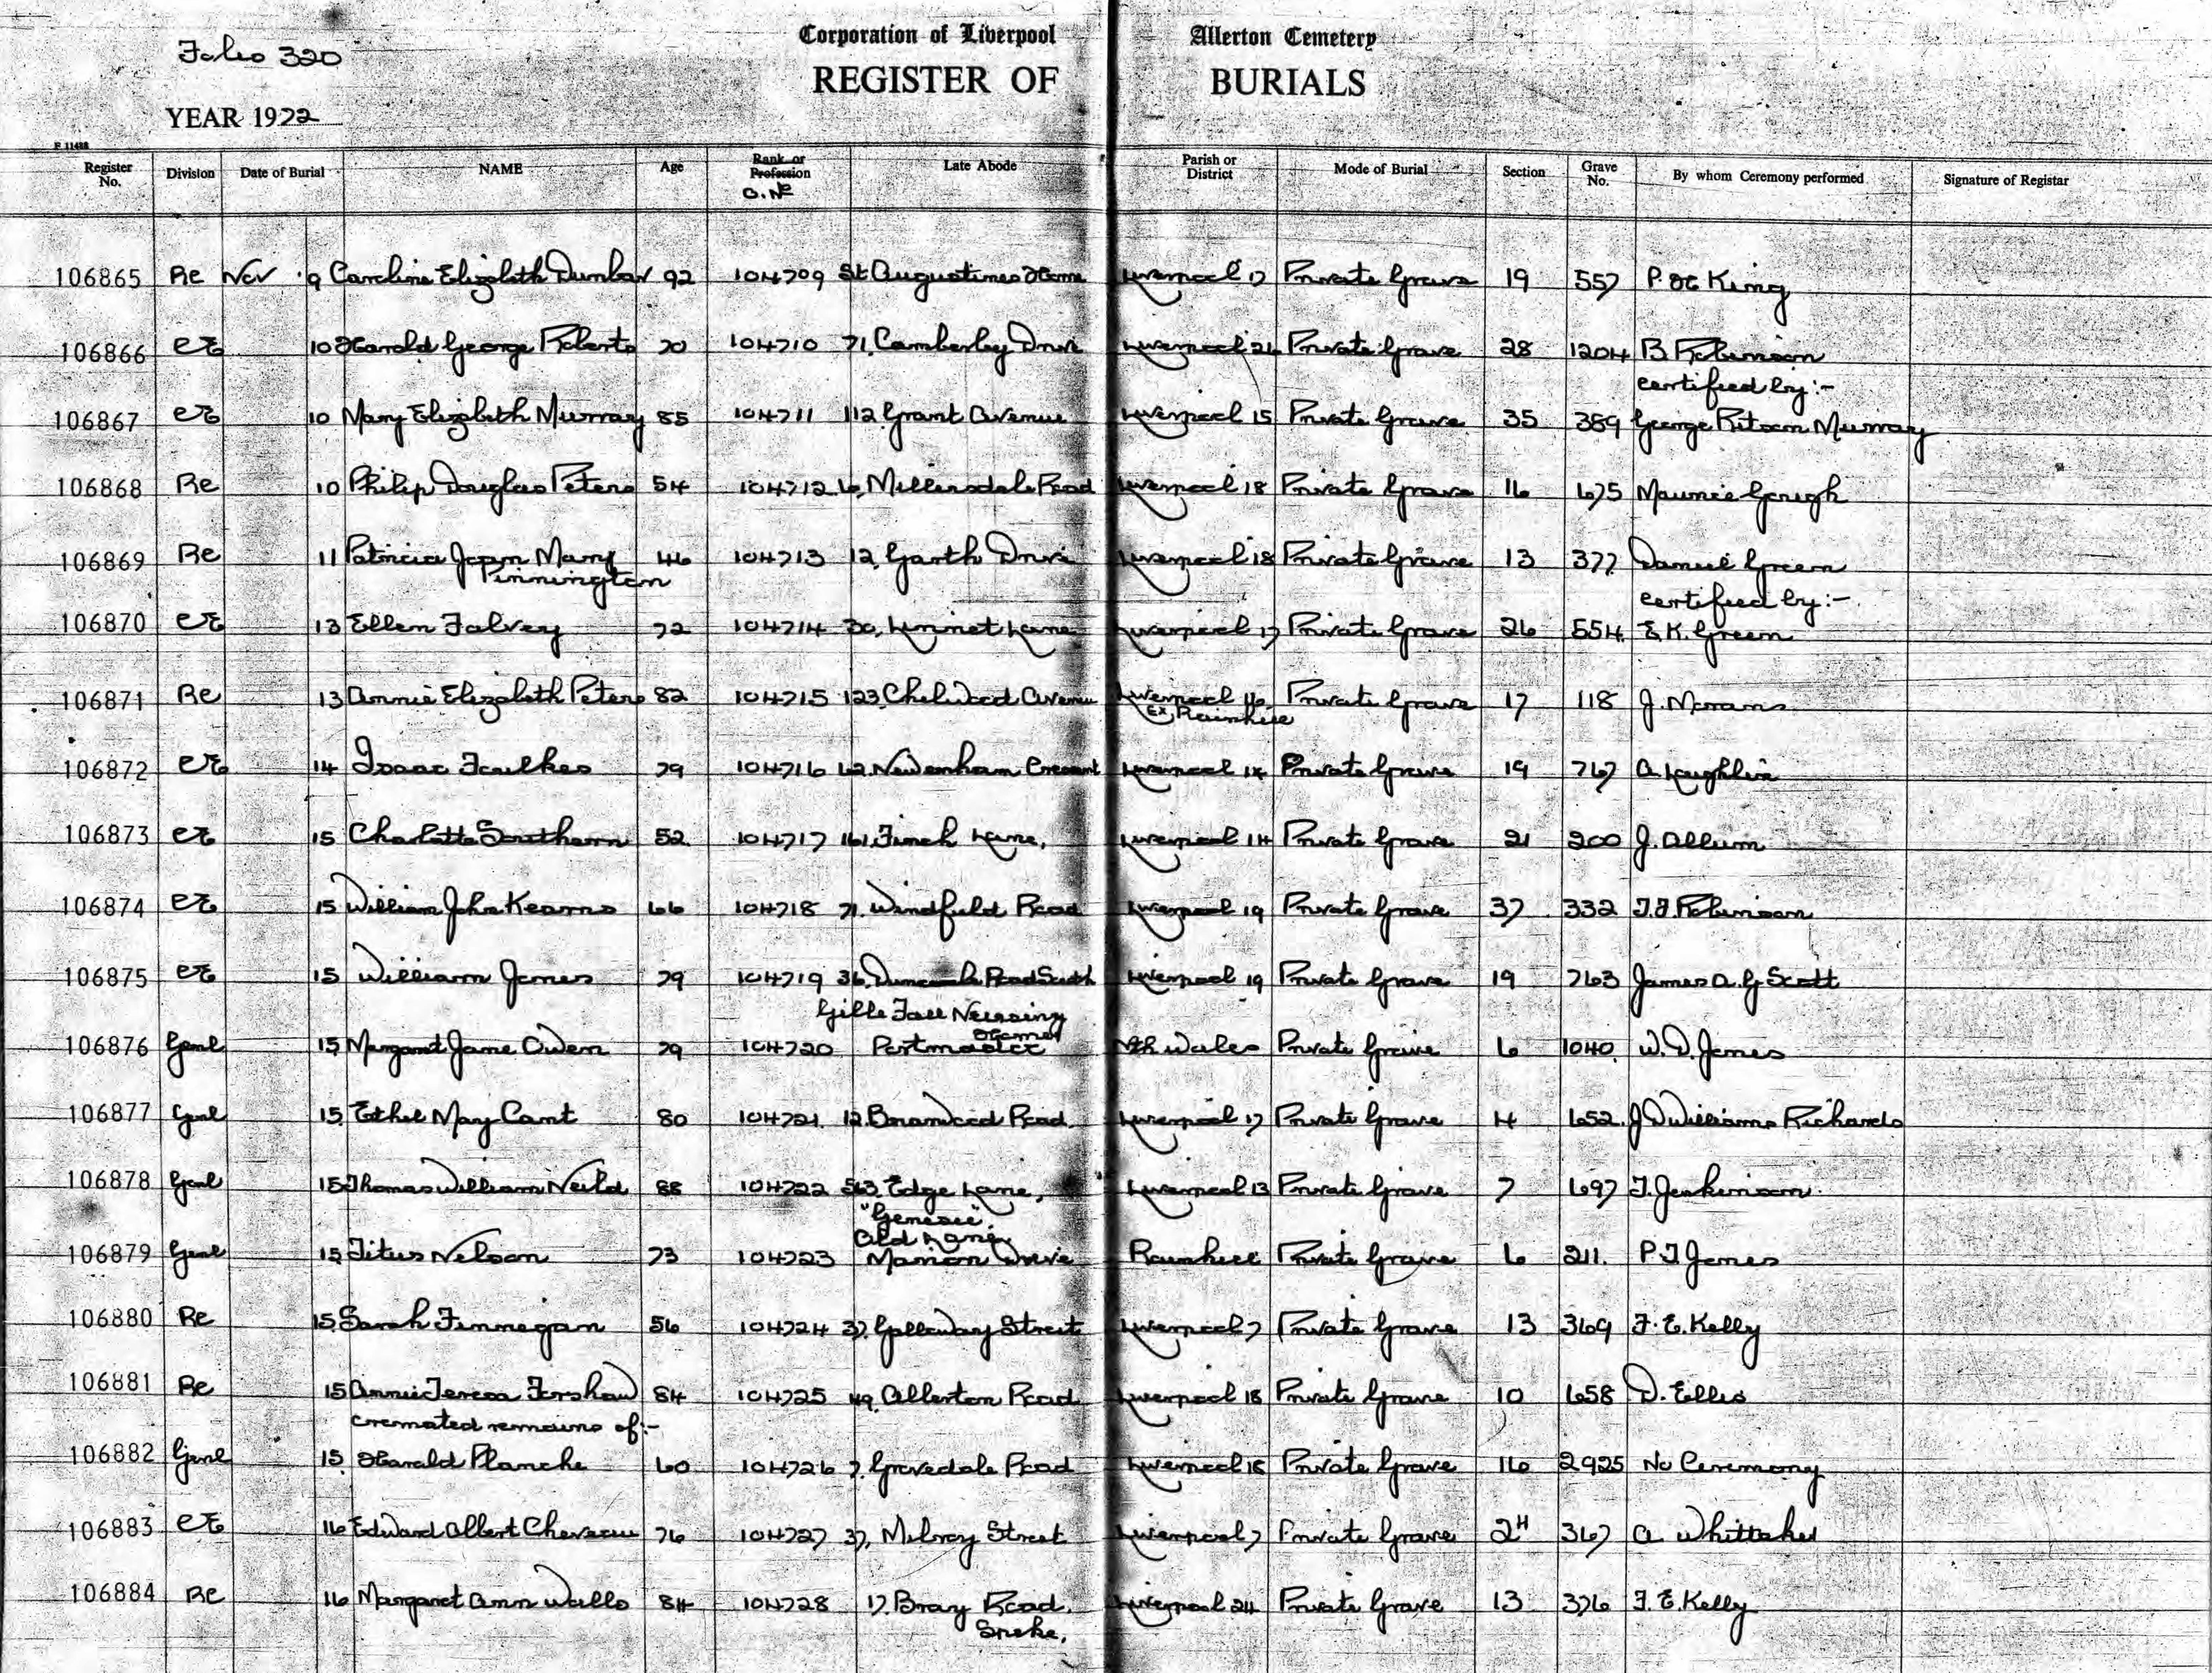 Folio 320
Corporation of Liverpool Allerton Cemetery
REGISTER OF BURIALS
YEAR 1972
P 11488
Register No. Division Date of Burial NAME Age Rank or Profession O. No Late Abode Parish or District Mode of Burial Section Grave No. By whom Ceremony performed Signature of Registrar
106865 Rc Nov 9 Caroline Elizabeth Dunbar 92 104709 St Augustines Home Liverpool 17 Private Grave 19 557 P. Mc King
106866 CE 10 Harold George Roberts 70 104710 71, Camberley Drive Liverpool Private Grave 28 1204 B Robinson
certified by:-
106867 CE 10 Mary Elizabeth Murray 85 104711 112, Grant Avenue Liverpool 15 Private Grave 35 389 George Ritson Murray
106868 Rc 10 Philip Douglas Peters 54 104712 6, Millersdale Road Liverpool 18 Private Grave 16 675 Maurice Gough
106869 Rc 11 Patricia Joan Mary 46 104713 12, Garth Drive Liverpool 18 Private Grave 13 377 Daniel Green
Pinnington
certified by:-
106870 CE 13 Ellen Falvey 72 104714 30, Linnet Lane Liverpool 17 Private Grave 26 554 E. K. Green
106871 Rc 13 Annie Elizabeth Peters 82 104715 123, Chelwood Avenue Liverpool 16 Private Grave 17 118 J. Morans
Ex, Rainhill
106872 CE 14 Isaac Foulkes 79 104716 62 Newenham Crescent Liverpool 14 Private Grave 19 767 A Laughlin
106873 CE 15 Charlotte Southern 52 104717 161, Finch Lane, Liverpool 14 Private Grave 21 200 J. Allum
106874 CE 15 William John Kearns 66 104718 71, Windfield Road Liverpool 19 Private Grave 37 332 T. J. Robinson
106875 CE 15 William Jones 79 104719 36, Road South Liverpool 19 Private Grave 19 763 James A. G Scott
Nursing
Home
106876 Genl 15 Margaret Jane Owen 79 104720 Portmadoc Nth Wales Private Grave 6 1040 W. D. Jones
106877 Genl 15 Ethel May Cant 80 104721 12, Bramwood Road Liverpool 17 Private Grave 4 652 J D Williams Richards
106878 Genl 15 Thomas William Neild 88 104722 563, Edge Lane, Liverpool 13 Private Grave 7 697 T. Jenkinson
"Genesis"
Old Lane,
106879 Genl 15 Titus Nelson 73 104723 Manion Drive Rainhill Private Grave 6 211. P. T Jones
106880 Rc 15 Sarah Finnegan 56 104724 37, Galloway Street Liverpool 7 Private Grave 13 369 F. E. Kelly
106881 Rc 15 Annie Teresa Forshaw 84 104725 49, Allerton Road Liverpool 18 Private Grave 10 658 D. Ellis
cremated remains of:-
106882 Genl 15 Harold Planche 60 104726 7, Grovedale Road Liverpool 18 Private Grave 16 2925 No Ceremony
106883 CE 16 Edward Albert 76 104727 37, Milroy Street Liverpool 7 Private Grave 2H 367 A Whittaker
106884 Rc 16 Margaret Ann Walls 84 104728 17, Bray Road, Liverpool 24 Private Grave 13 376 F. E. Kelly
Speke,